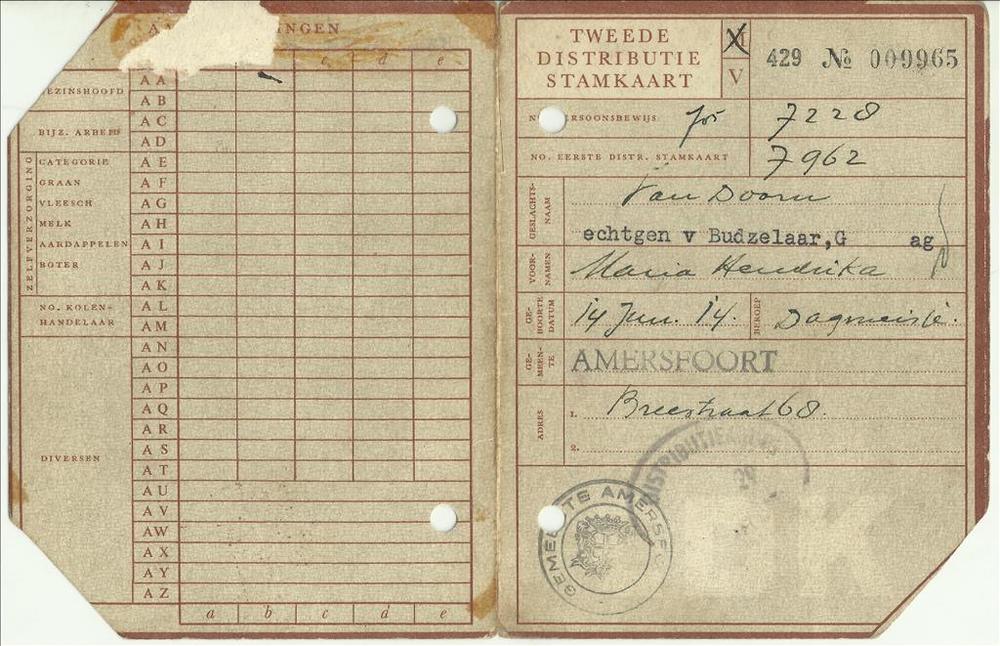 INGEN
c d e
EZINSHOOFD
AA
AB
BIJZ. ARBEID
AC
AD
ZELFVERZORGING
CATEGORIE
AE
GRAAN
AF
VLEESCH
AG
MELK
AH
AARDAPPELEN
AI
BOTER
AJ
AK
NO. KOLEN-
AL
HANDELAAR
AM
AN
AO
AP
AQ
AR
AS
DIVERSEN
AT
AU
AV
AW
AX
AY
AZ
a b c d e
TWEEDE
DISTRIBUTIE
STAMKAART
M
V
429 № 009965
RSOONSBEWIJS 7228
NO. EERSTE DISTR. STAMKAART 7962
GESLACHTS-
NAAM
Van Doorn
echtgen v Budzelaar,G ag
VOOR-
NAMEN
Maria Hendrika
GE-
BOORTE
DATUM
14 Jun. 14.
BEROEP
Dagmeisje.
GE-
MEEN-
TE
AMERSFOORT
ADRES
1. Breestraat 68
2.
DISTRIBUTIE
GEMEENTE AMERSFO
BK